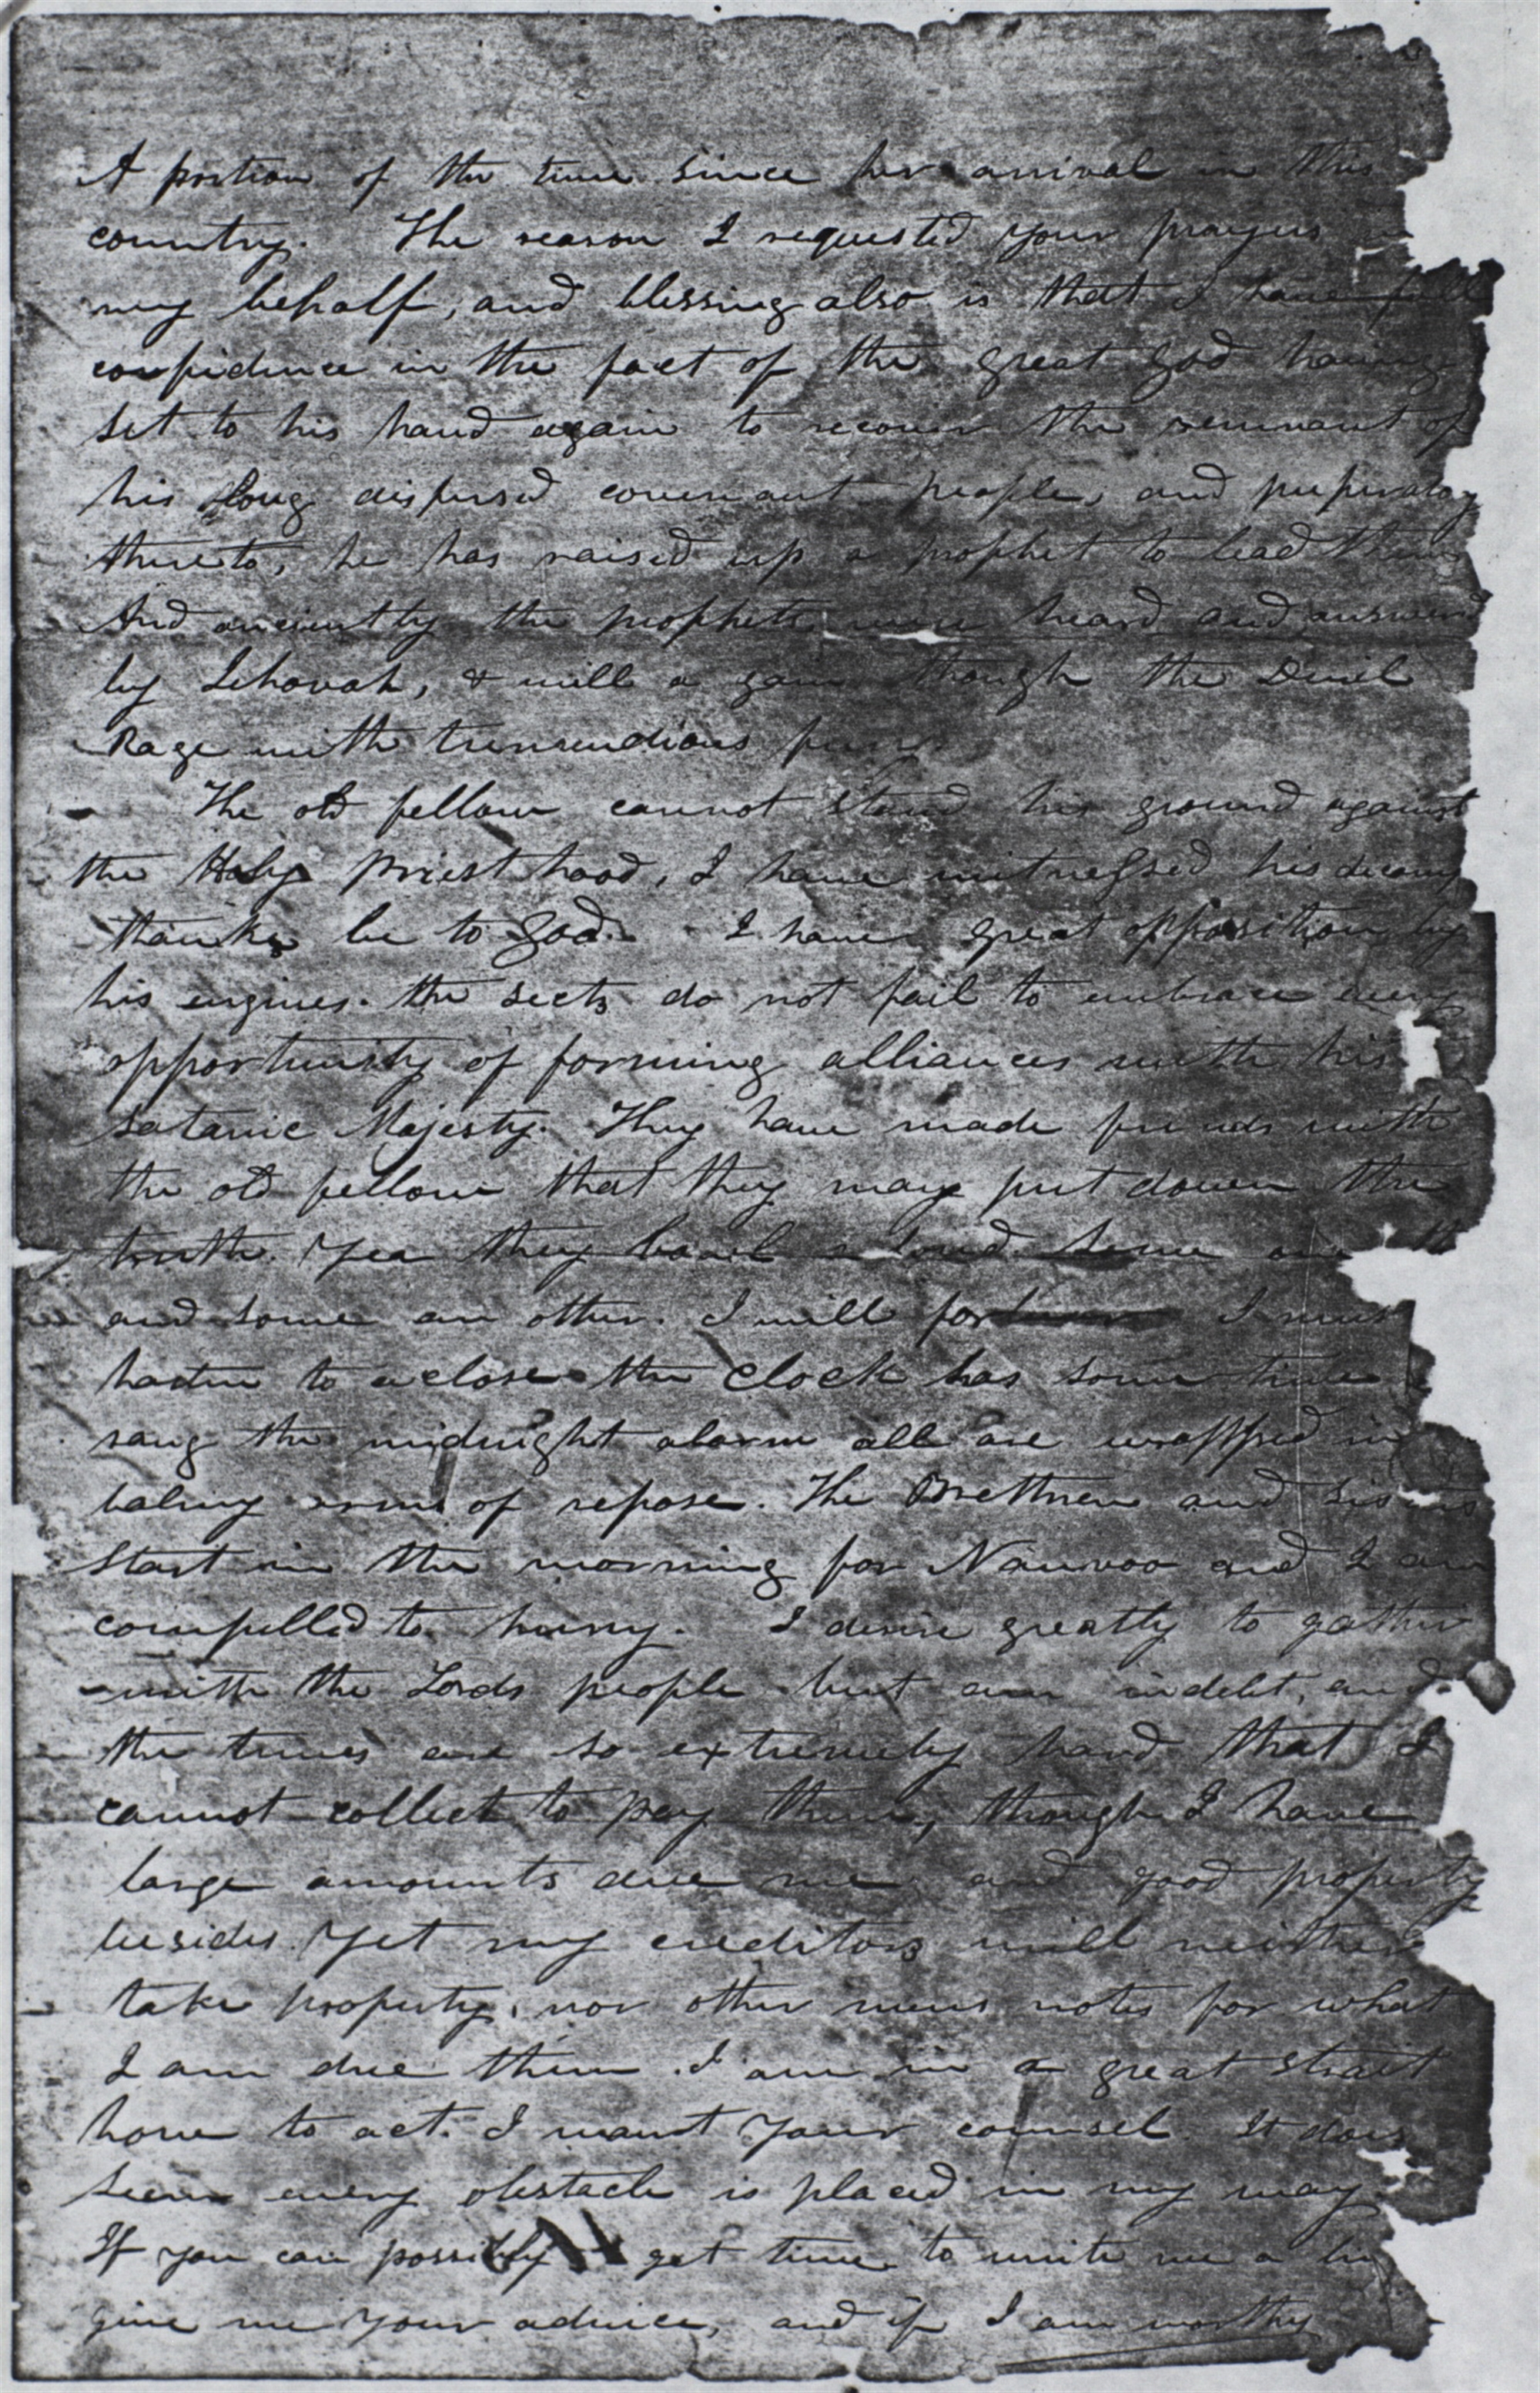 A portion of the time since her arrival in this
country. The reason I requested your prayers in
my behalf, and blessing also is that I have full
confidence in the fact of the great God having
set to his hand again to recover the remnant of
his long dispersed covenant people, and preperatory
thereto, he has raised up a prophet to lead them
And anciently the prophets were heard and answered
by Jehovah, & will a gain though the Devil
Rage with tremendious fury
The old fellow cannot stand his ground against
the Holy Priest hood, I have witnessed his
thanks be to God. I have great opposition by
his engines. the sects do not fail to embrace every
opportunity of forming alliances with his
Satanic Majesty. They have made friends with
the old fellow that they may put down the
truth. Yea they bawl a loud some one
and some an other. I will I must
hasten to a close the clock has some time
sang the midnight alarm all are wrapped in
balmy arms of repose. The Brethren and sisters
start in the morning for Nauvoo and I am
compelled to hurry. I desire greatly to gather
with the Lords people but am in debt, and
the times are so extremely hard that I
cannot collect to pay them, though I have
large amounts due me and good property
besides. Yet my creditors will neither
take property, nor other mens notes for what
I am due them. I am in a great strait
how to act. I want your counsel. It does
seem every obstacle is placed in my way
If you can possibly get time to write me a
give me your advice, and if I am worthy